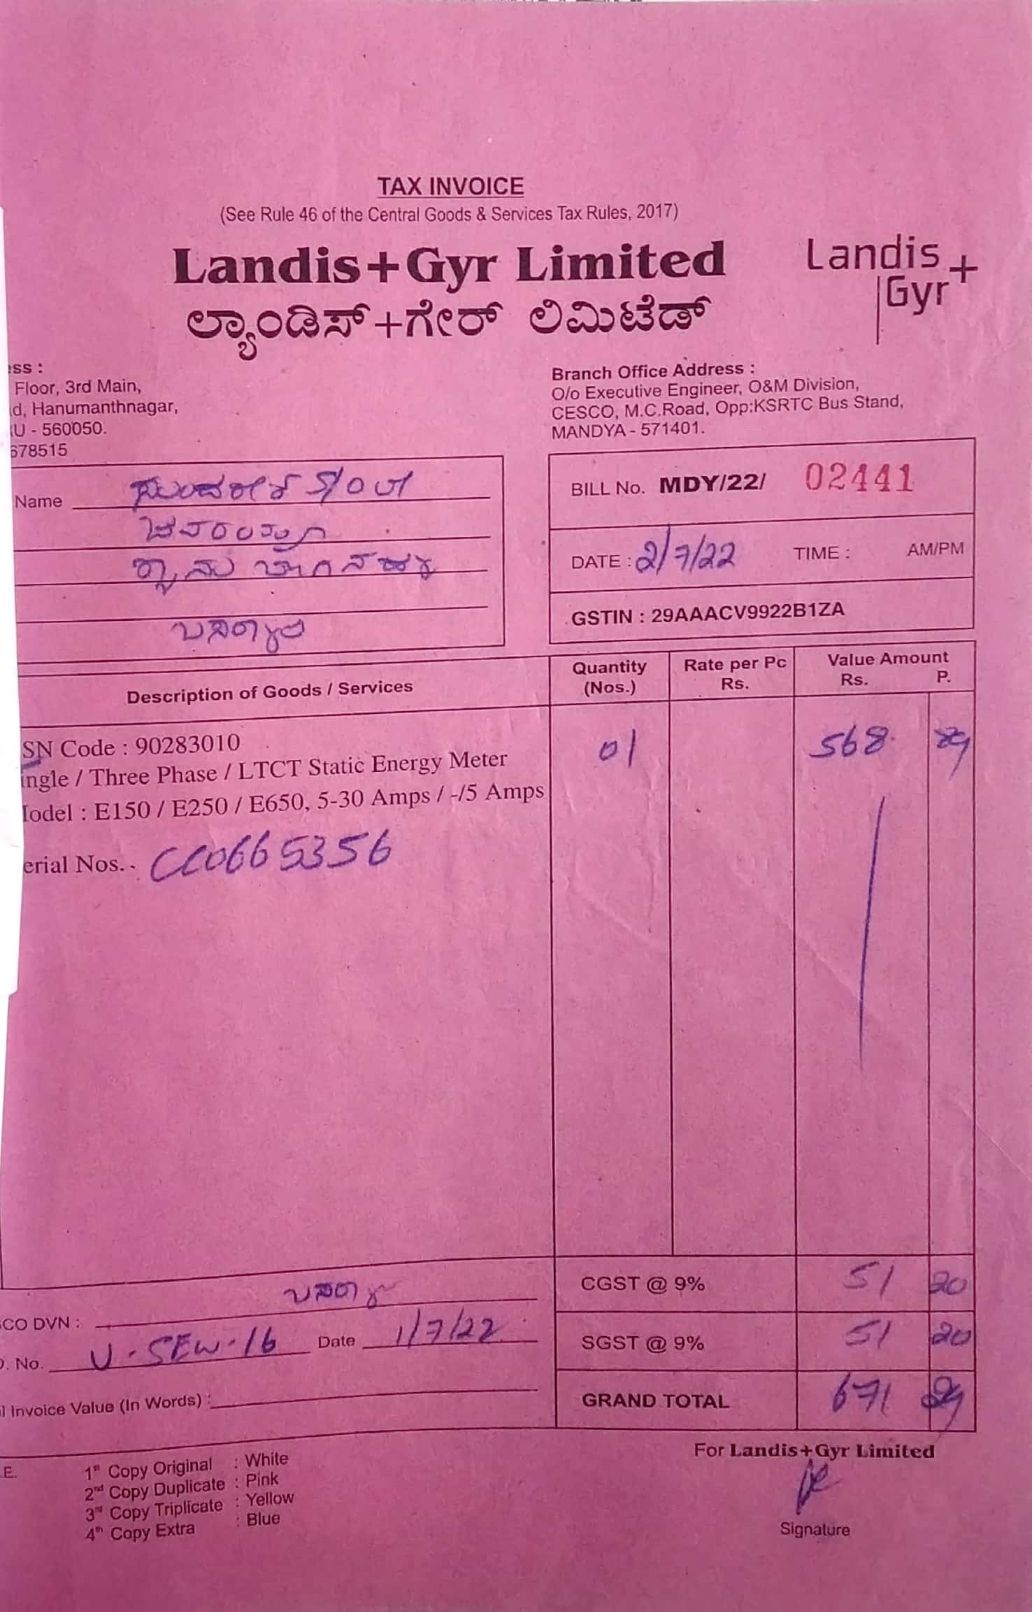 TAX INVOICE
(See Rule 46 of the Central Goods & Services Tax Rules, 2017)
Landis+Gyr Limited
ಲ್ಯಾಂಡಿಸ್+ಗೇರ್ ಲಿಮಿಟೆಡ್
Landis
Gyr+
ess :
Floor, 3rd Main,
d, Hanumanthnagar,
U - 560050.
678515
Branch Office Address :
O/o Executive Engineer, O&M Division,
CESCO, M.C.Road, Opp:KSRTC Bus Stand,
MANDYA - 571401.
Name
BILL No. MDY/22/ 02441
DATE : 2/7/22 TIME : AM/PM
GSTIN : 29AAACV9922B1ZA
Description of Goods / Services
Quantity (Nos.)
Rate per Pc Rs.
Value Amount Rs. P.
SN Code : 90283010
ingle / Three Phase / LTCT Static Energy Meter
lodel : E150 / E250 / E650, 5-30 Amps / -/5 Amps
erial Nos.- CC0665356
01 568
CO DVN :
CGST @ 9% 51 20
No. U-SEW-16 Date 1/7/22
SGST @ 9% 51 20
l Invoice Value (In Words) :
GRAND TOTAL 671
E.
1st Copy Original : White
2nd Copy Duplicate : Pink
3rd Copy Triplicate : Yellow
4th Copy Extra : Blue
For Landis+Gyr Limited
Signature